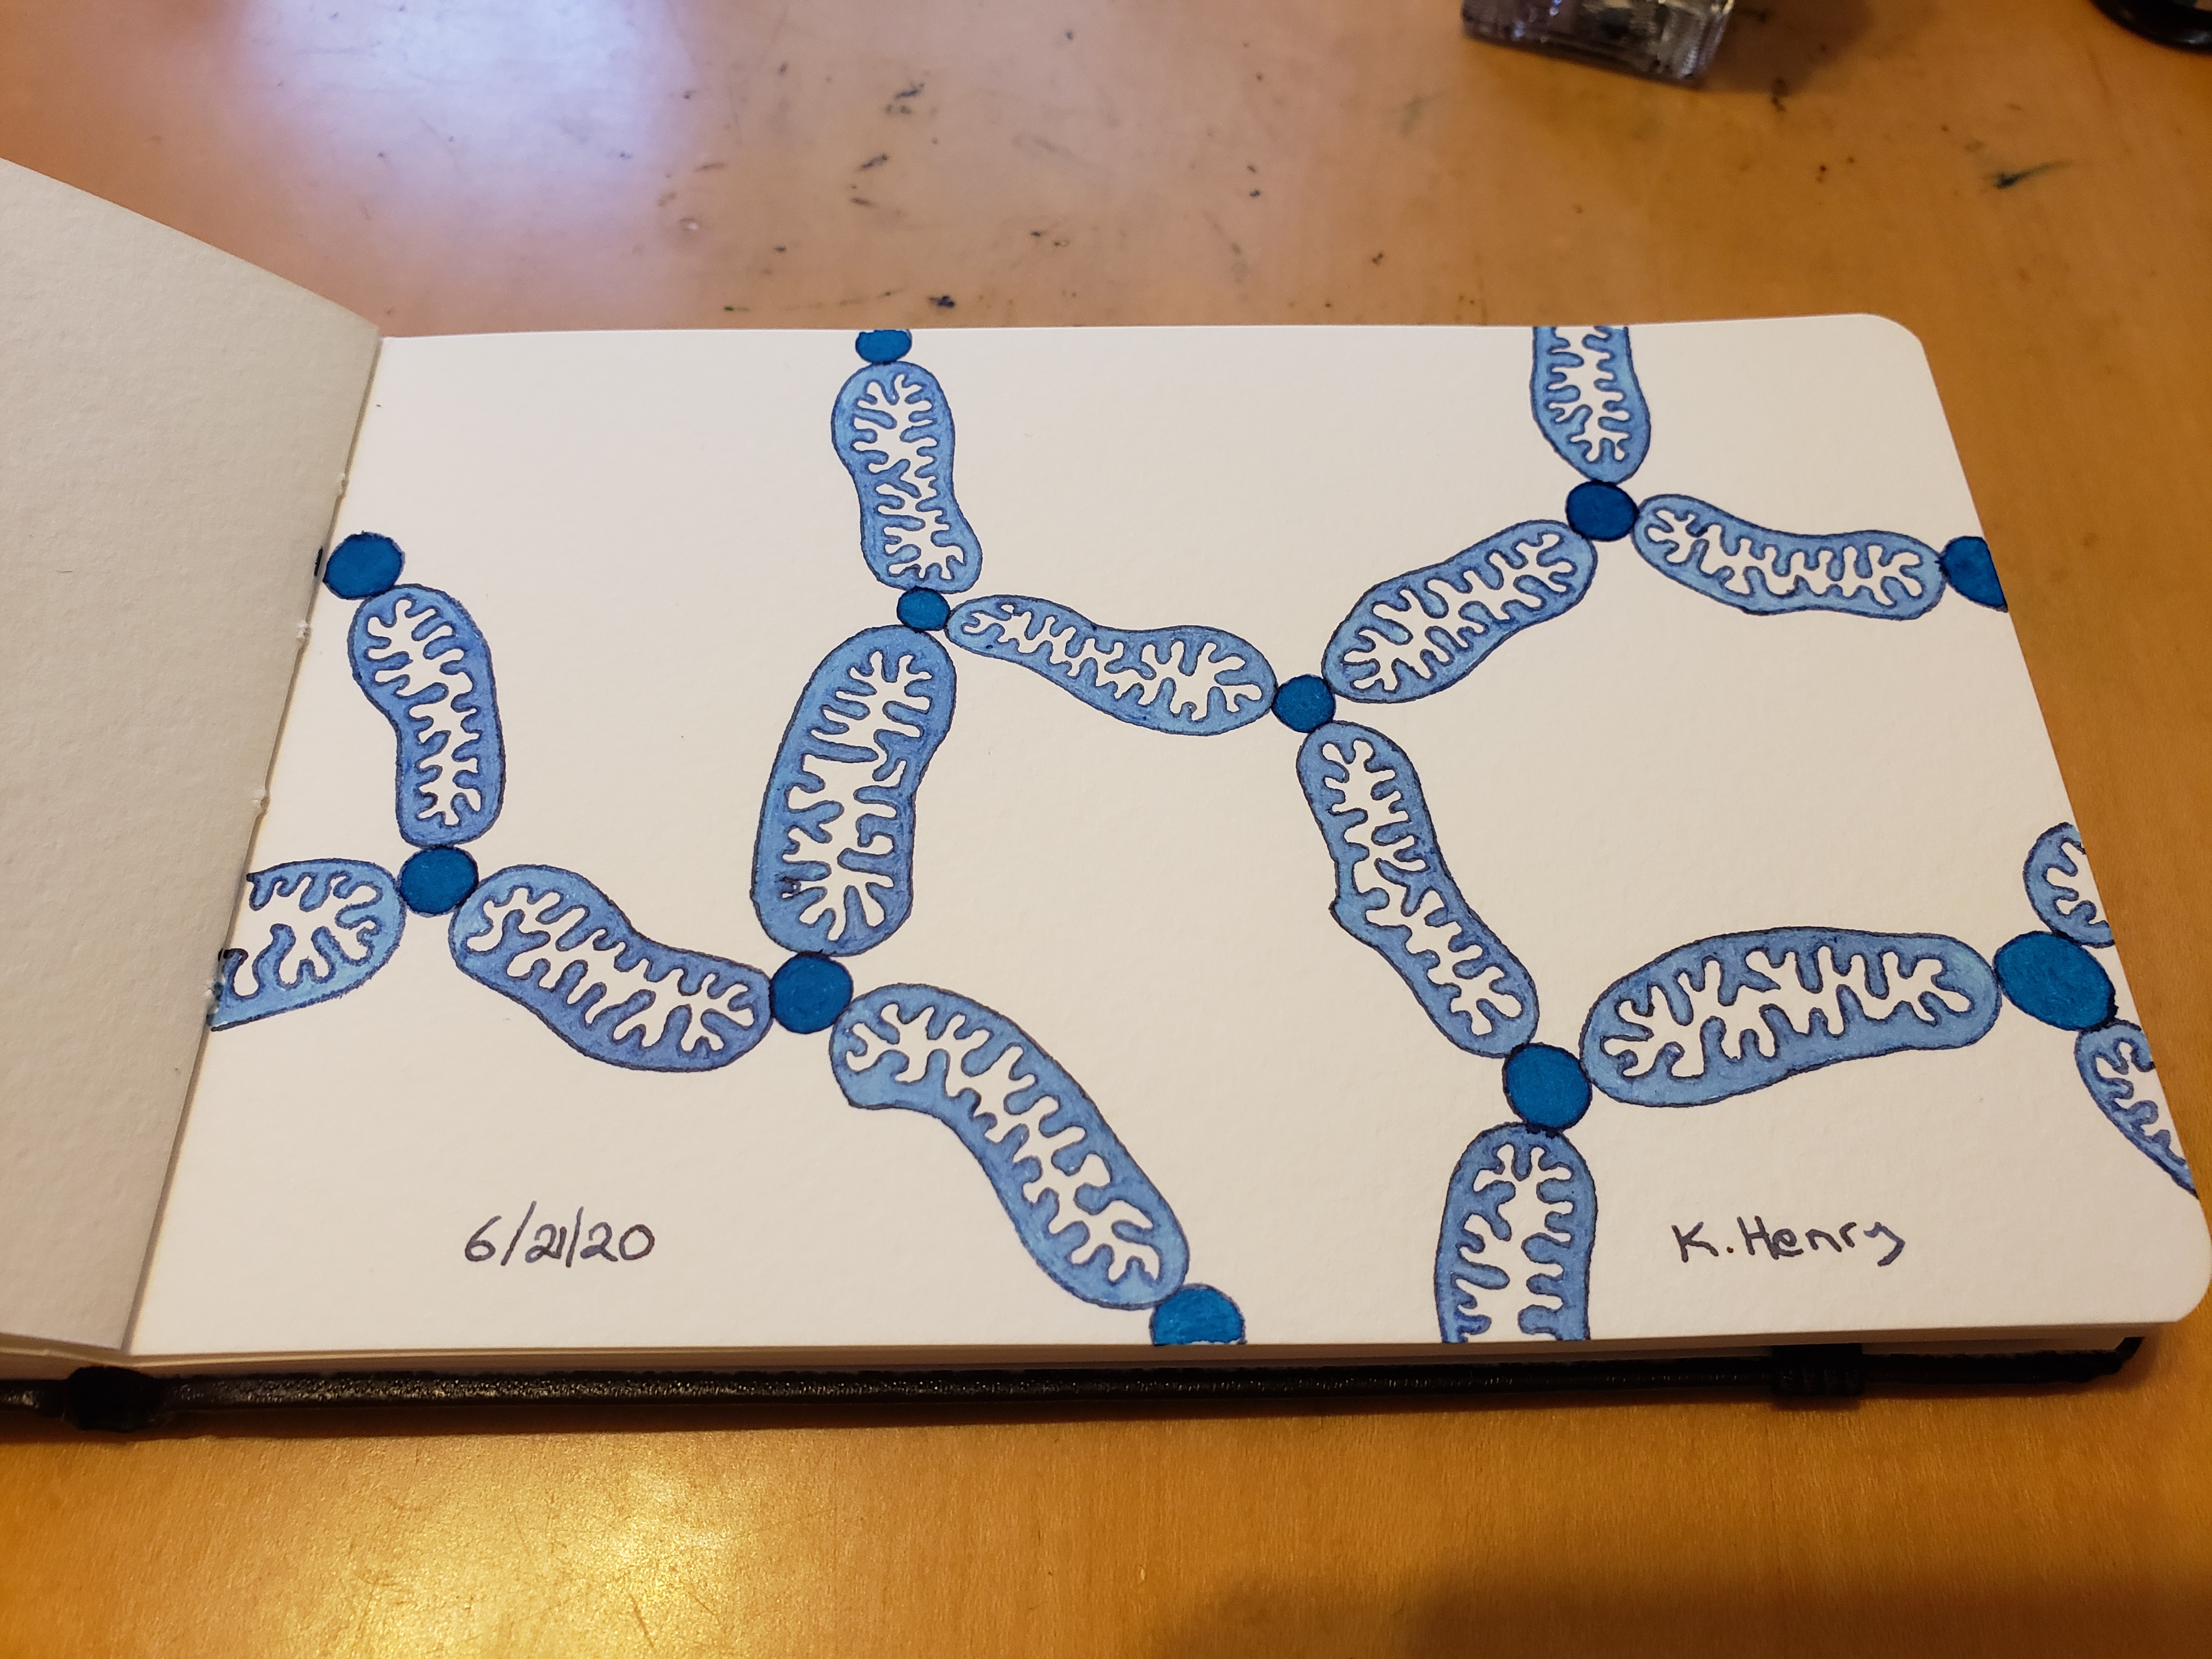 6/21/20
K. Henry